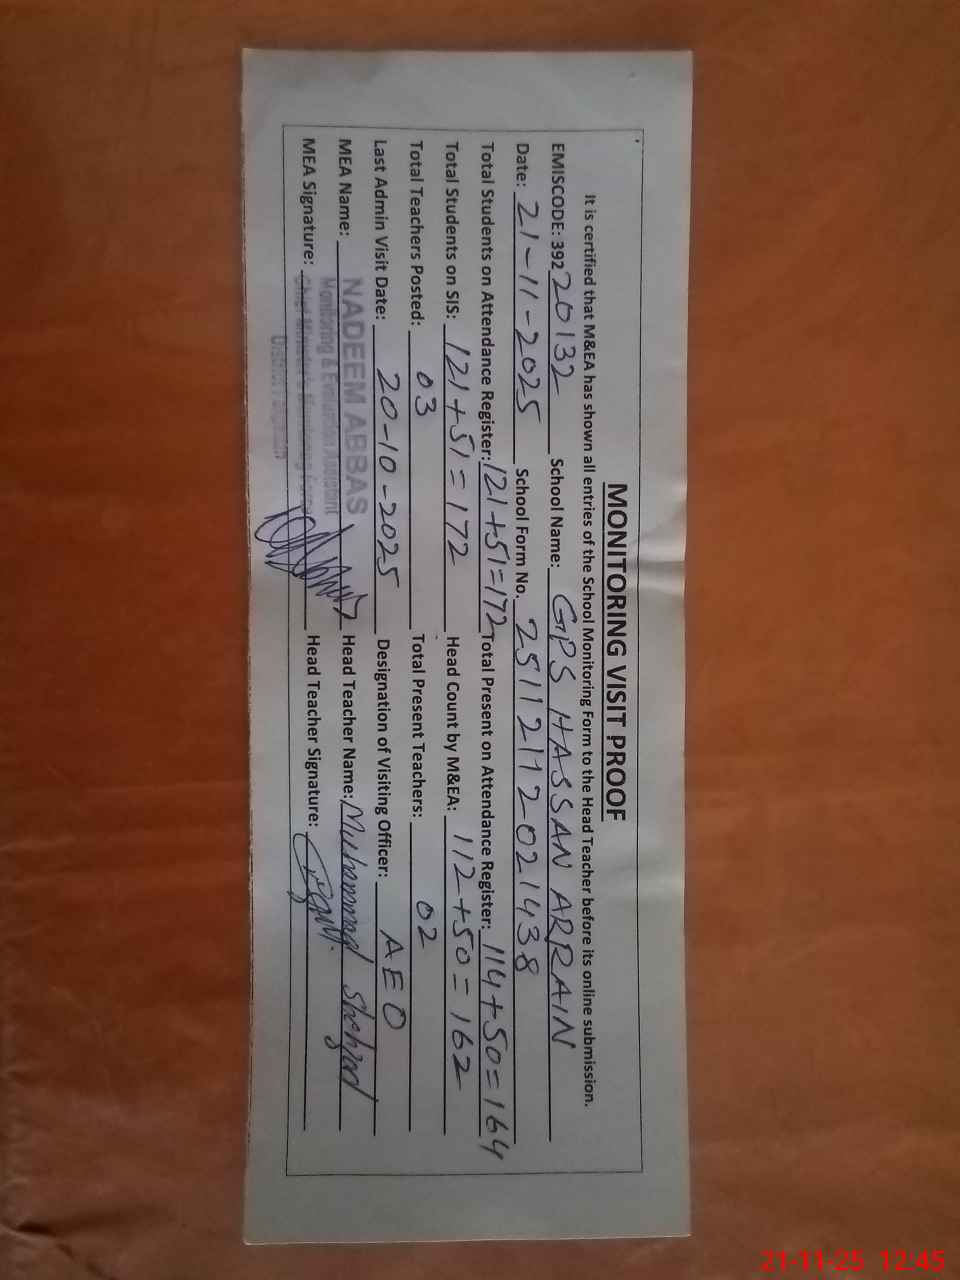 MONITORING VISIT PROOF
It is certified that M&EA has shown all entries of the School Monitoring Form to the Head Teacher before its online submission.
EMISCODE: 39220132 School Name: GPS HASSAN ARRAIN
Date: 21-11-2025 School Form No. 25112112021438
Total Students on Attendance Register: 121+51=172 Total Present on Attendance Register: 114+50=164
Total Students on SIS: 121+51=172 Head Count by M&EA: 112+50=162
Total Teachers Posted: 03 Total Present Teachers: 02
Last Admin Visit Date: 20-10-2025 Designation of Visiting Officer: AEO
MEA Name: NADEEM ABBAS Head Teacher Name: Muhammad Shehzad
Monitoring & Evaluation Assistant
MEA Signature: Chief Minister's Monitoring Force Head Teacher Signature:
District
21-11-25 12:45